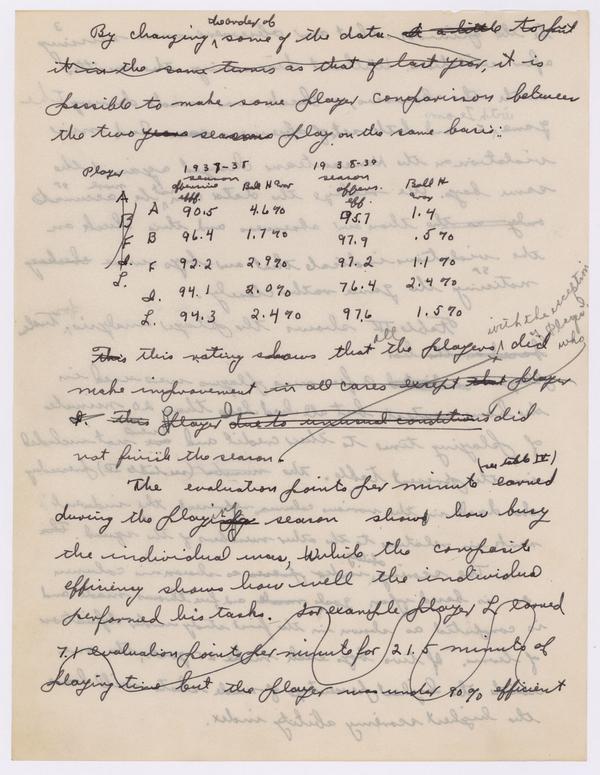 the order of
By changing ^ some of the data it a little to put
it in the same terms as that of last year, it is
possible to make some player comparison between
the two years seasons play on the same basis:
Player 1937-38 season 1938-39 season
offensive eff. Ball H Error offens. eff. Ball H Error
A
B
F
I.
L.
A 90.5 4.6% 95.7 1.4
B 96.4 1.7% 97.9 .5%
F 92.2 2.9% 97.2 1.1%
I. 94.1 2.0% 76.4 2.4%
L. 94.3 2.4% 97.6 1.5%
with the exception
of player I
who
all
This this rating shows that the players did
make improvement in all cases except that player
I. this player due to unusual conditions did
not finish the season.
(see table IV)
The evaluation points per minute earned
during the playing season shows how busy
the individual was, While the composite
efficiency shows how well the individual
performed his tasks. For example player L earned
7.1 evaluation points per minute for 21.5 minutes of
playing time but the player was under 80% efficient